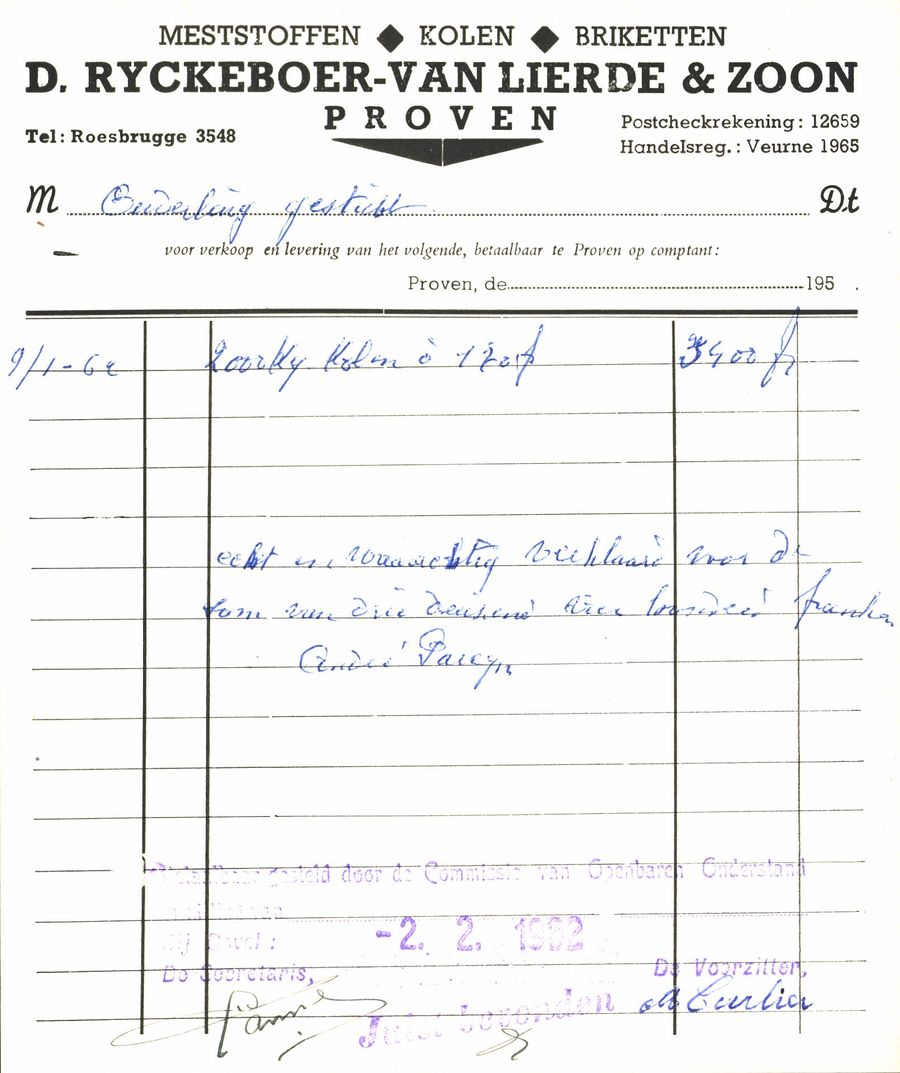 MESTSTOFFEN ◆ KOLEN ◆ BRIKETTEN
D. RYCKEBOER-VAN LIERDE & ZOON
PROVEN
Tel: Roesbrugge 3548
Postcheckrekening: 12659
Handelsreg.: Veurne 1965
M Ouderling gesticht Dt
voor verkoop en levering van het volgende, betaalbaar te Proven op comptant:
Proven, de 195 .
9/1-62 2000 Kg Kolen à 170 f 3400 fr
echt en waarachtig verklaard voor de
som van drie duizend vier honderd franken
André
Betaalbaar gesteld door de Commissie van Openbaren Onderstand
in zitting van
Bij Bevel :
-2. 2. 1962
De Secretaris,
De Voorzitter,
Juist bevonden